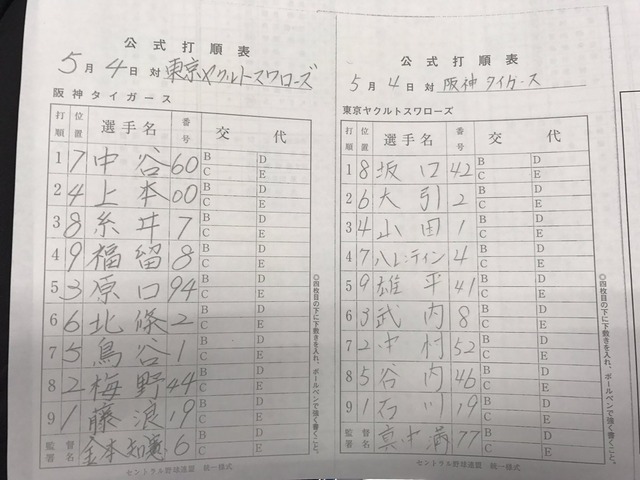 公式打順表
5月4日対 東京ヤクルトスワローズ
阪神タイガース
打順 位置 選手名 番号 交代
1 7 中谷 60 B D C E
2 4 上本 00 B D C E
3 8 糸井 7 B D C E
4 9 福留 8 B D C E
5 3 原口 94 B D C E
6 6 北條 2 B D C E
7 5 鳥谷 1 B D C E
8 2 梅野 44 B D C E
9 1 藤浪 19 B D C E
監督署名 金本知憲 6 B D C E
セントラル野球連盟 統一様式
公式打順表
5月4日対 阪神タイガース
東京ヤクルトスワローズ
打順 位置 選手名 番号 交代
1 8 坂口 42 B D C E
2 6 大引 2 B D C E
3 4 山田 1 B D C E
4 7 バレンティン 4 B D C E
5 9 雄平 41 B D C E
6 3 武内 8 B D C E
7 2 中村 52 B D C E
8 5 谷内 46 B D C E
9 1 石川 19 B D C E
監督署名 真中満 77 B D C E
セントラル野球連盟 統一様式
◎四枚目の下に下敷きを入れ、ボールペンで強く書くこと。
◎四枚目の下に下敷きを入れ、ボールペンで強く書くこと。